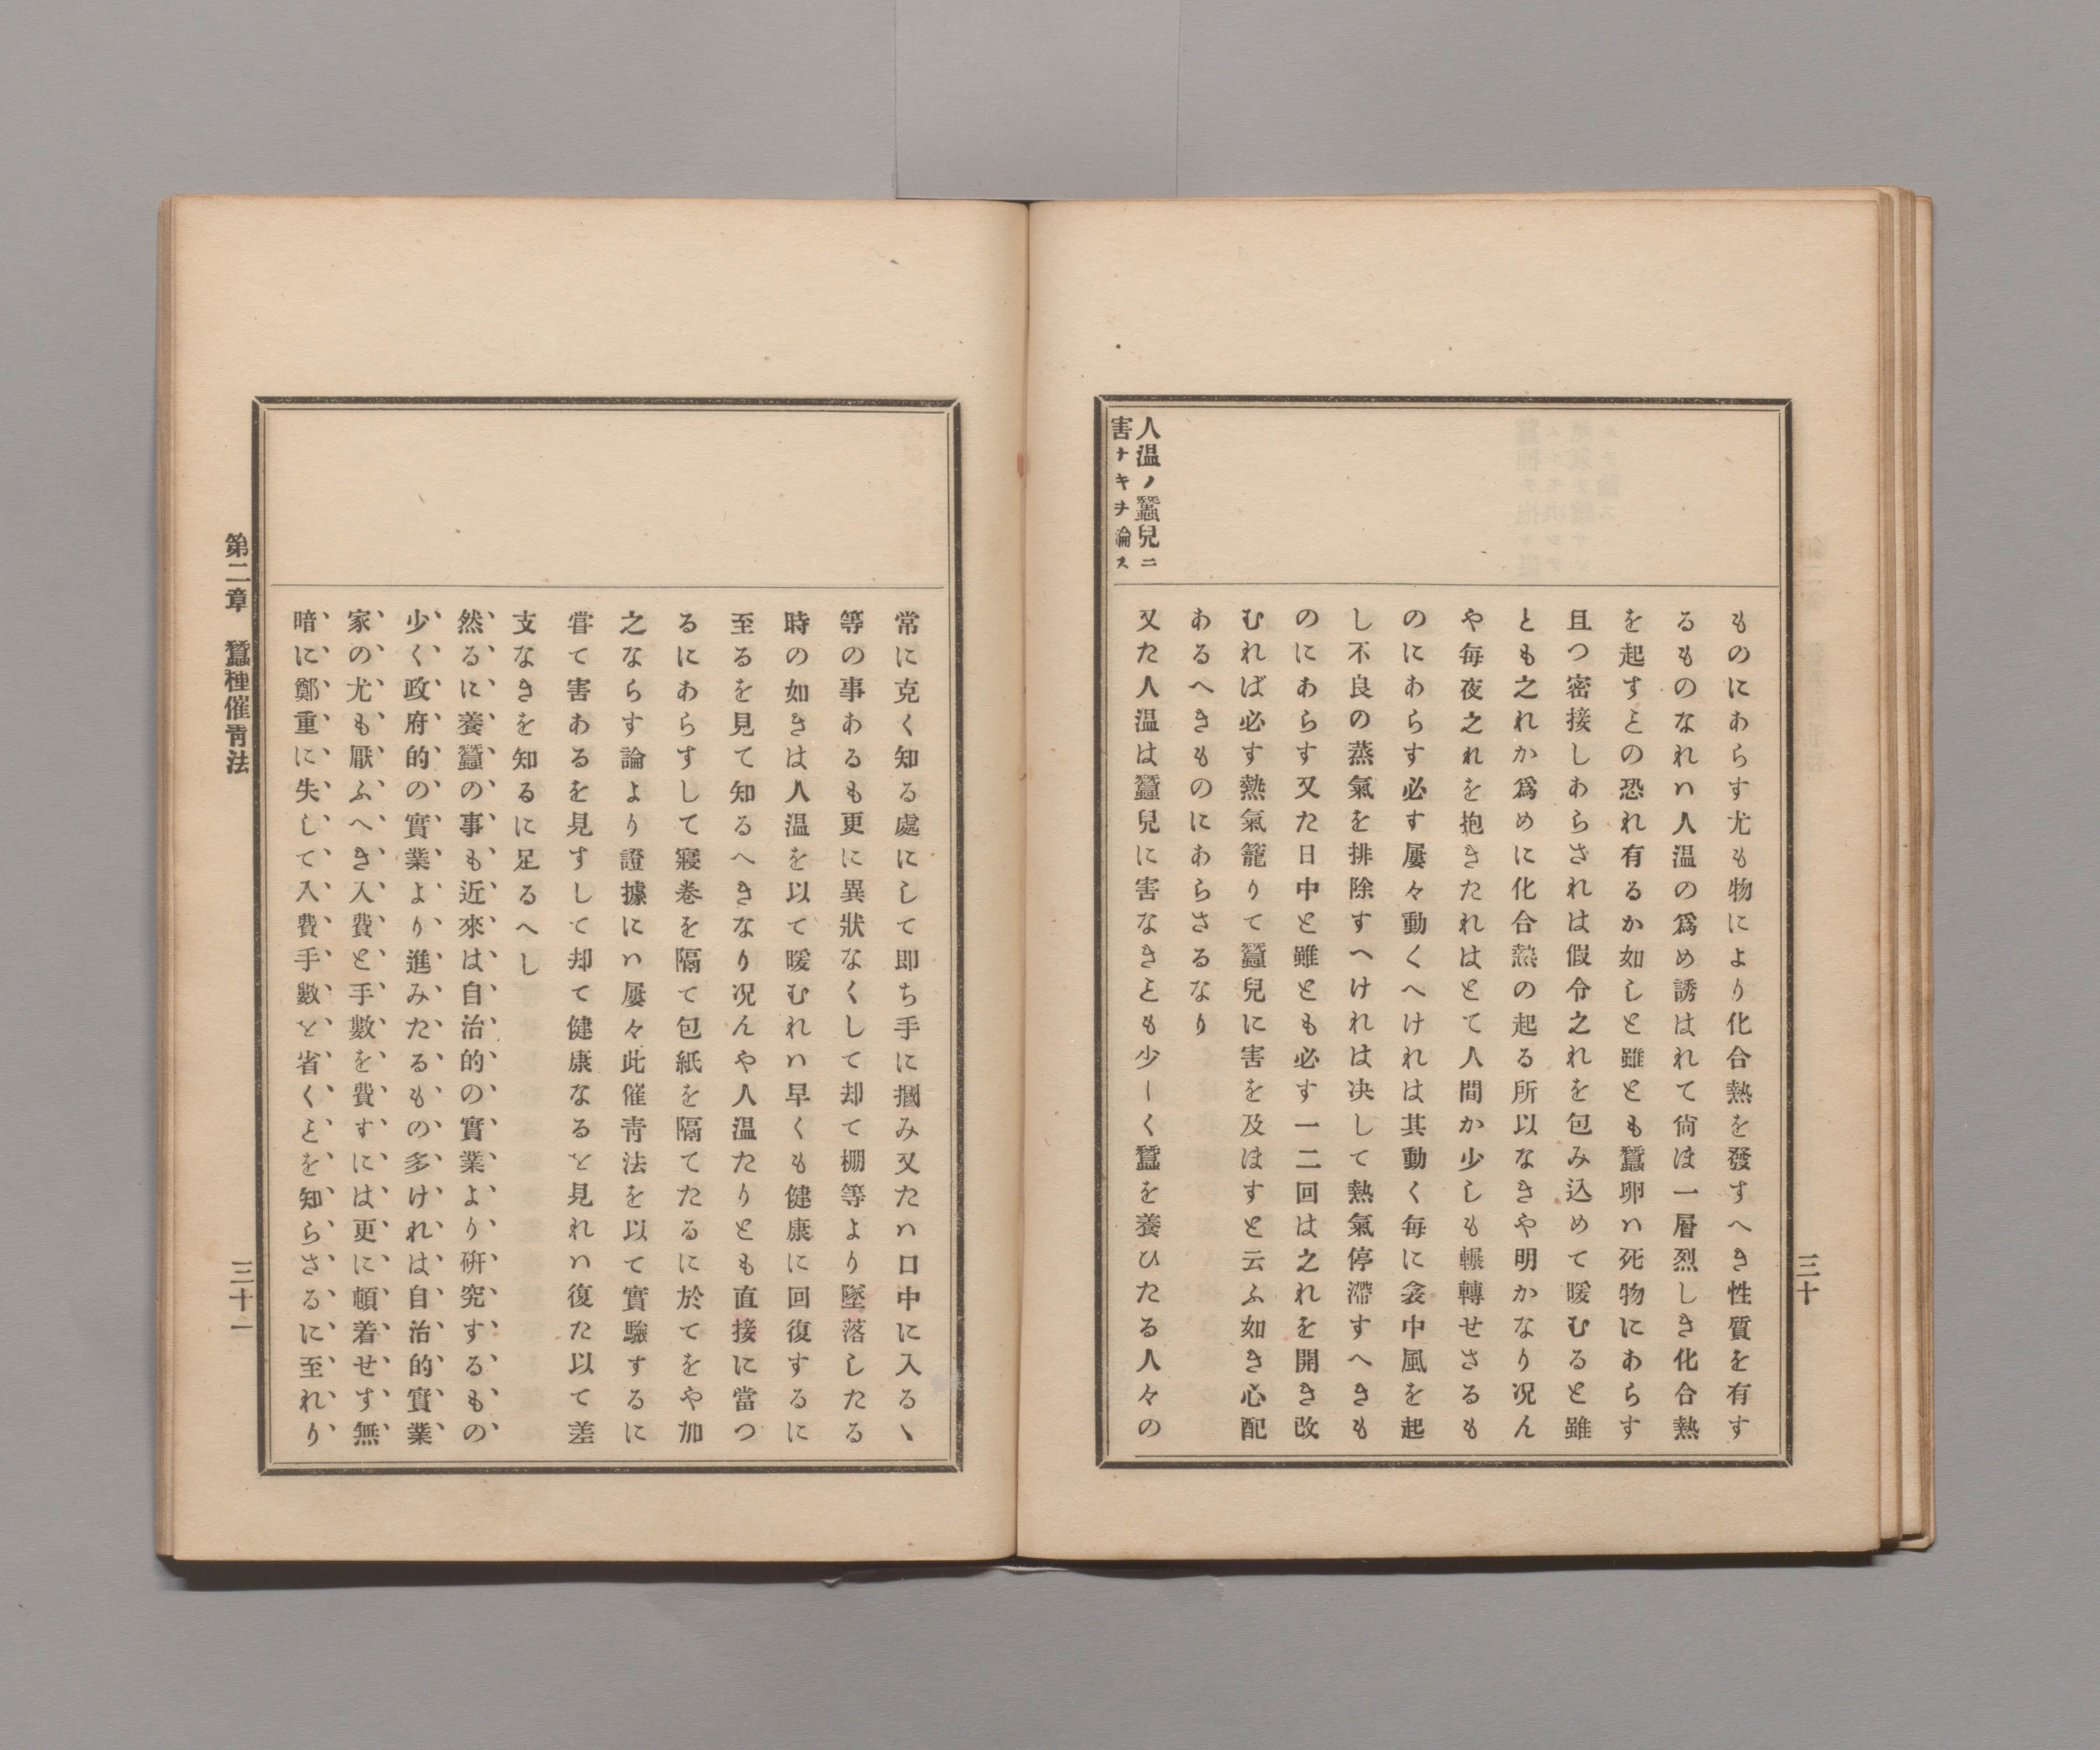 三十
ものにあらす尤も物により化合熱を發すへき性質を有す
るものなれハ人温の爲め誘はれて尙ほ一層烈しき化合熱
を起すとの恐れ有るか如しと雖とも蠶卵ハ死物にあらす
且つ密接しあらされは假令之れを包み込めて暖むると雖
とも之れか爲めに化合熱の起る所以なきや明かなり况ん
や毎夜之れを抱きたれはとて人間か少しも輾轉せさるも
のにあらす必す屢々動くへけれは其動く毎に衾中風を起
し不良の蒸氣を排除すへけれは决して熱氣停滯すへきも
のにあらす又た日中と雖とも必す一二回は之れを開き改
むれば必す熱氣籠りて蠶兒に害を及ほすと云ふ如き心配
あるへきものにあらさるなり
人温ノ蠶兒ニ
害ナキヲ論ス
又た人温は蠶兒に害なきとも少しく蠶を養ひたる人々の
常に克く知る處にして即ち手に摑み又たハ口中に入るヽ
等の事あるも更に異狀なくして却て棚等より墜落したる
時の如きは人温を以て暖むれハ早くも健康に回復するに
至るを見て知るへきなり况んや人温たりとも直接に當つ
るにあらすして寢卷を隔て包紙を隔てたるに於てをや加
之ならす論より證據にハ屢々此催青法を以て實驗するに
甞て害あるを見すして却て健康なるを見れハ復た以て差
支なきを知るに足るへし
然るに養蠶の事も近來は自治的の實業より硏究するもの
少く政府的の實業より進みたるもの多けれは自治的實業
家の尤も厭ふへき入費と手數を費すには更に頓着せす無
暗に鄭重に失して入費手數を省くとを知らさるに至れり
第二章　蠶種催靑法
三十一